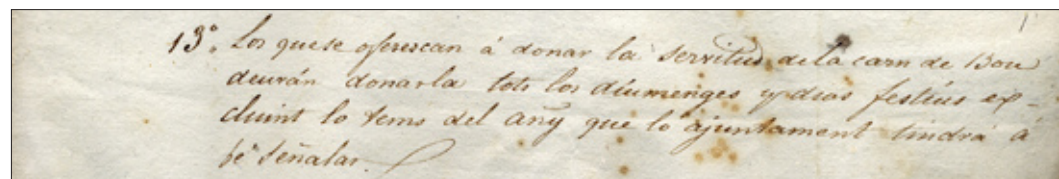 13º. Los que se oferescan á donar la servitud de la carn de Bou
deurán donarla tots los diumenges y dias festius ex-
cluint lo tems del añy que lo ajuntament tindrá á
bé señalar.